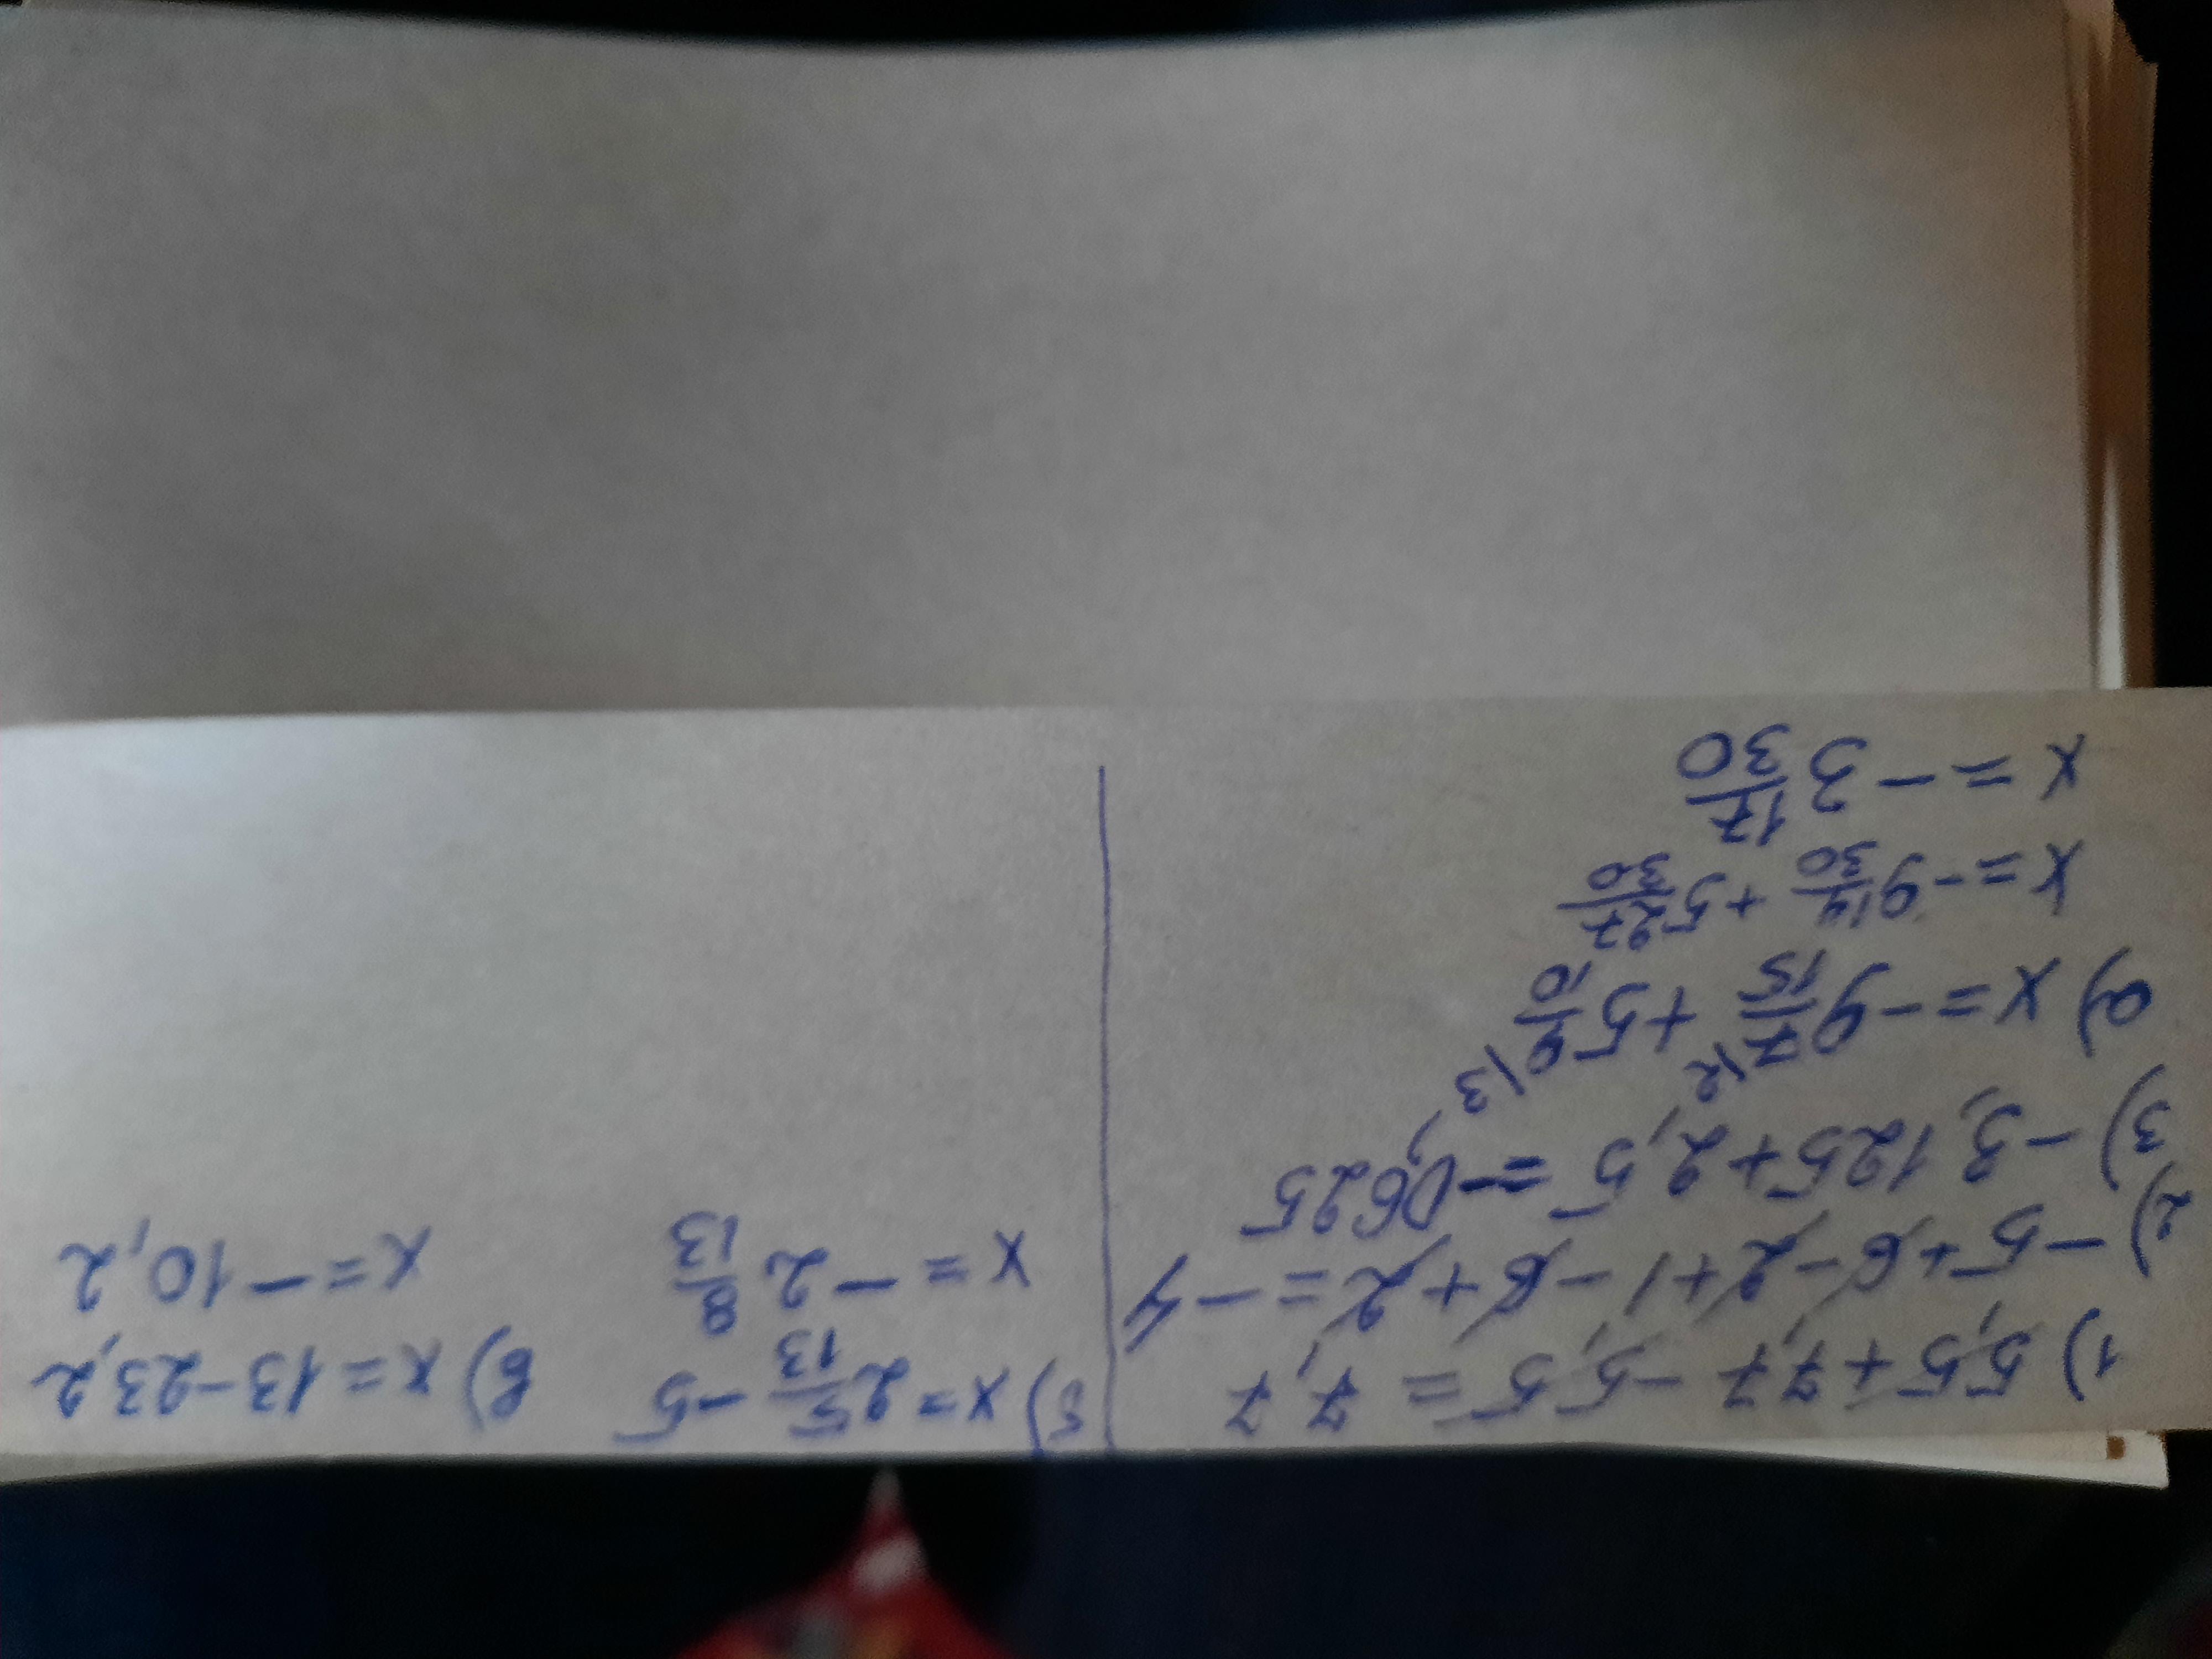 1) 5,5+7,7-5,5=7,7
2) -5+6-2+1-6+2=-4
3) -3,125+2,5=-0,625
а) x=-9 7/15 \2 +5 9/10 \3
x=-9 14/30 +5 27/30
x=-3 17/30
б) x=2 5/13 -5
x=-2 8/13
в) x=13-23,2
x=-10,2